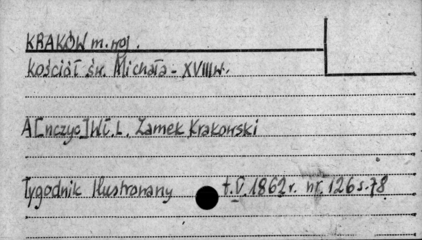 KRAKÓW m. woj.
kościół św. Michała - XVIII w.
A[nczyc] Wł. L. Zamek Krakowski
Tygodnik Ilustrowany t. V. 1862 r. nr. 126 s. 78